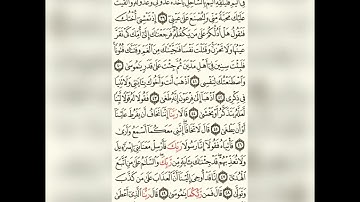 فِي ٱلْيَمِّ فَلْيُلْقِهِ ٱلْيَمُّ بِٱلسَّاحِلِ يَأْخُذْهُ عَدُوٌّ لِّي وَعَدُوٌّ لَّهُۥ وَأَلْقَيْتُ
عَلَيْكَ مَحَبَّةً مِّنِّي وَلِتُصْنَعَ عَلَىٰ عَيْنِيٓ ٣٩ إِذْ تَمْشِيٓ أُخْتُكَ
فَتَقُولُ هَلْ أَدُلُّكُمْ عَلَىٰ مَن يَكْفُلُهُۥ فَرَجَعْنَٰكَ إِلَىٰٓ أُمِّكَ كَيْ تَقَرَّ
عَيْنُهَا وَلَا تَحْزَنَ وَقَتَلْتَ نَفْسًا فَنَجَّيْنَٰكَ مِنَ ٱلْغَمِّ وَفَتَنَّٰكَ فُتُونًا
فَلَبِثْتَ سِنِينَ فِيٓ أَهْلِ مَدْيَنَ ثُمَّ جِئْتَ عَلَىٰ قَدَرٍ يَٰمُوسَىٰ ٤٠
وَٱصْطَنَعْتُكَ لِنَفْسِي ٤١ ٱذْهَبْ أَنتَ وَأَخُوكَ بِـَٔايَٰتِي وَلَا تَنِيَا
فِي ذِكْرِي ٤٢ ٱذْهَبَآ إِلَىٰ فِرْعَوْنَ إِنَّهُۥ طَغَىٰ ٤٣ فَقُولَا لَهُۥ قَوْلًا لَّيِّنًا
لَّعَلَّهُۥ يَتَذَكَّرُ أَوْ يَخْشَىٰ ٤٤ قَالَا رَبَّنَآ إِنَّنَا نَخَافُ أَن يَفْرُطَ عَلَيْنَآ
أَوْ أَن يَطْغَىٰ ٤٥ قَالَ لَا تَخَافَآ إِنَّنِي مَعَكُمَآ أَسْمَعُ وَأَرَىٰ ٤٦
فَأْتِيَاهُ فَقُولَآ إِنَّا رَسُولَا رَبِّكَ فَأَرْسِلْ مَعَنَا بَنِيٓ إِسْرَٰٓءِيلَ
وَلَا تُعَذِّبْهُمْ قَدْ جِئْنَٰكَ بِـَٔايَةٍ مِّن رَّبِّكَ وَٱلسَّلَٰمُ عَلَىٰ مَنِ ٱتَّبَعَ
ٱلْهُدَىٰٓ ٤٧ إِنَّا قَدْ أُوحِيَ إِلَيْنَآ أَنَّ ٱلْعَذَابَ عَلَىٰ مَن كَذَّبَ
وَتَوَلَّىٰ ٤٨ قَالَ فَمَن رَّبُّكُمَا يَٰمُوسَىٰ ٤٩ قَالَ رَبُّنَا ٱلَّذِيٓ أَعْطَىٰ